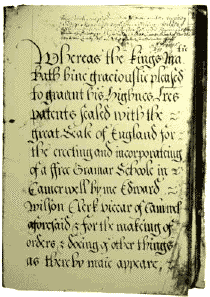 Whereas the kings Ma:tie
hath bine graciouslie pleased
to graunt his Highnes Lres
patents sealed with the
great Seale of England for
the erecting and incorporating
of a ffree Gramar Schoole in
Camerwell by me Edward
Wilson Clerk viccar of Camerwell
aforesaid & for the making of
orders & doeing of other things
as therby maie appeare,